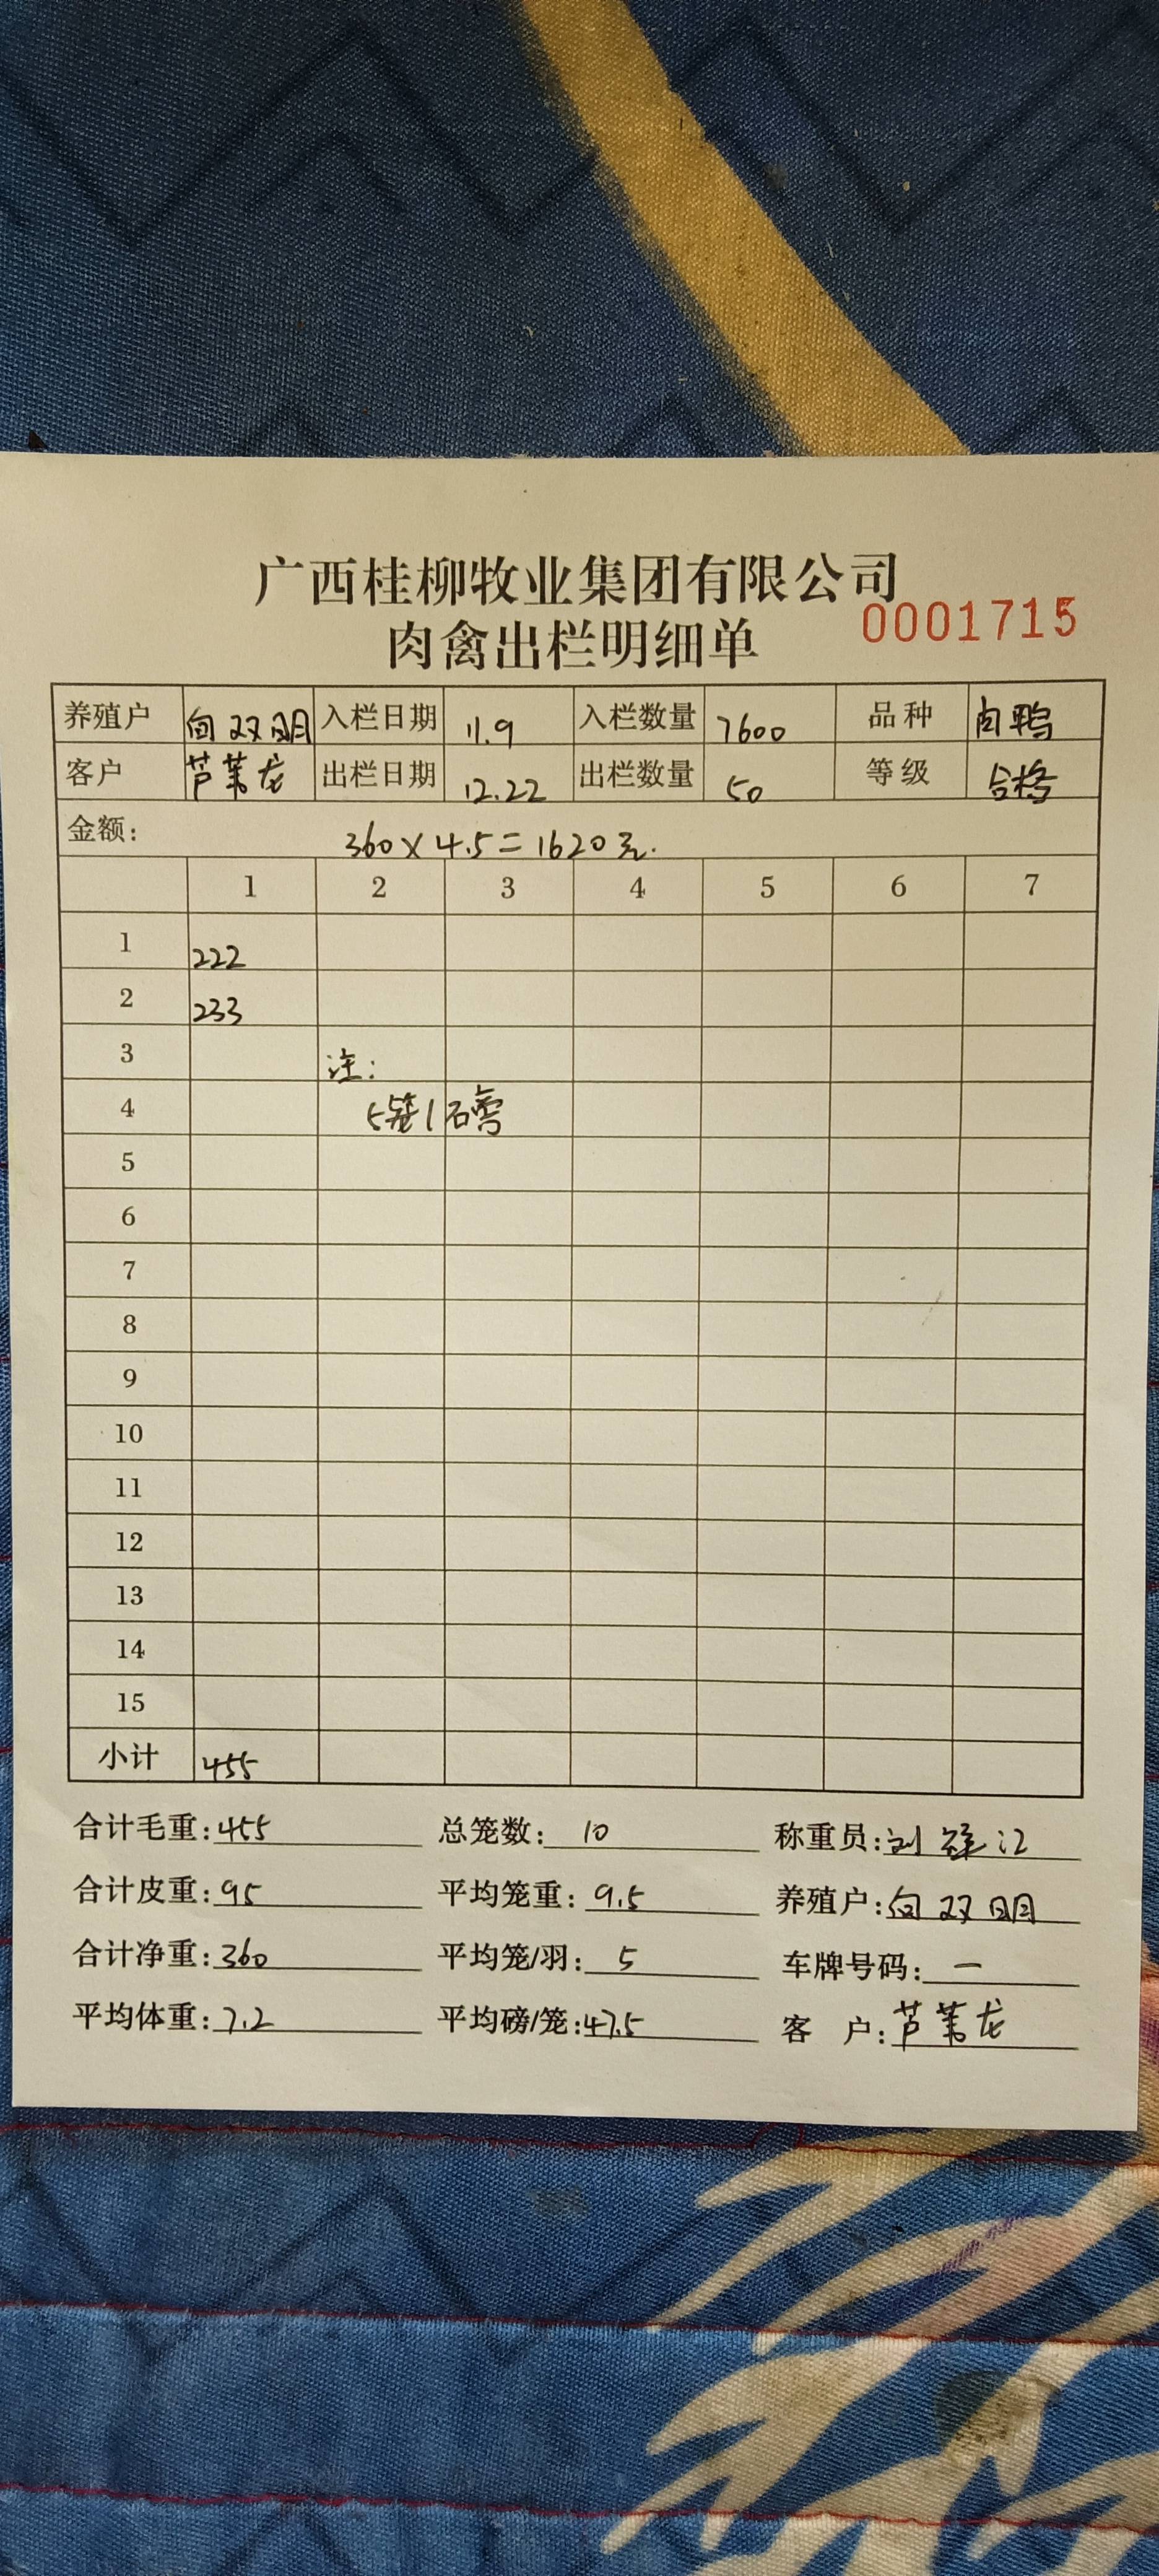 广西桂柳牧业集团有限公司
肉禽出栏明细单 0001715
养殖户 向双明 入栏日期 11.9 入栏数量 7600 品种 肉鸭
客户 芦苇龙 出栏日期 12.22 出栏数量 50 等级 合格
金额: 360×4.5=1620元.
1 2 3 4 5 6 7
1 222
2 233
3 注:
4 5笼1磅
5
6
7
8
9
10
11
12
13
14
15
小计 455
合计毛重:455 总笼数: 10 称重员:刘 江
合计皮重:95 平均笼重: 9.5 养殖户:向双明
合计净重:360 平均笼/羽: 5 车牌号码: 一
平均体重:7.2 平均磅/笼:47.5 客 户:芦苇龙